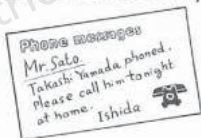 Phone messages
Mr. Sato.
Takashi Yamada phoned.
Please call him tonight
at home.
Ishida